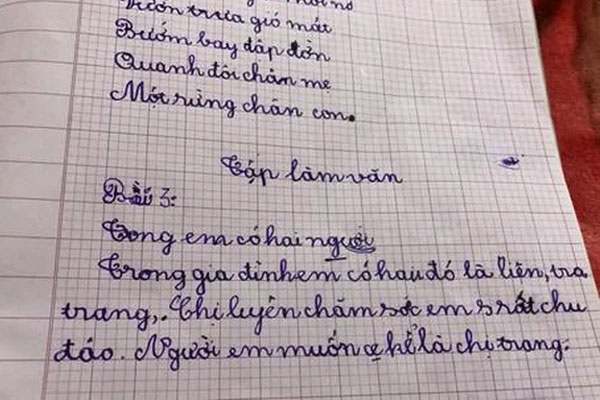 Vườn trưa gió mát
Bướm bay dập dờn
Quanh đôi chân mẹ
Một rừng chân con.
Tập làm văn
Bài 3:
Trong em có hai người
Trong gia đình em có hai đó là liên, tra
trang,. Chị luyên chăm sóc em s rất chu
đáo. Người em muốn kể là chị trang.